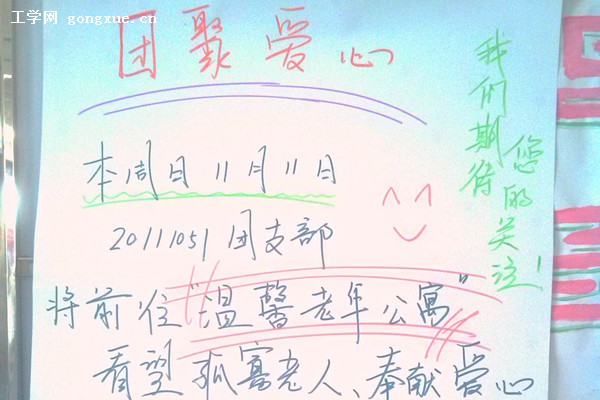 工学网 gongxue.cn
团聚爱心
本周日11月11日
20111051团支部
将前往“温馨老年公寓”
看望孤寡老人、奉献爱心
我们期待
您的关注!